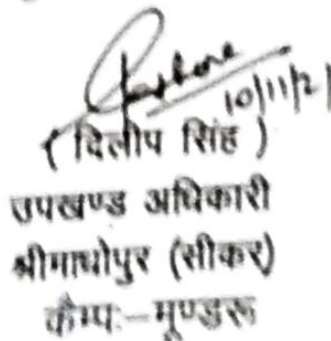 10/11/21
( दिलीप सिंह )
उपखण्ड अधिकारी
श्रीमाधोपुर (सीकर)
कैम्पः–मूण्डरू